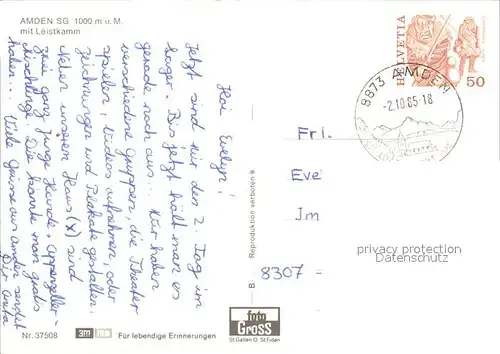 AMDEN SG 1000 m ü. M.
mit Leistkamm
Hoi Evelyn!
Jetzt sind wir den 2. Tag im
Lager. Bis jetzt hält man es
gerade noch aus... Wir haben
verschiedene Gruppen, die Theater
spielen, Videos aufnehmen, oder
Zeichnungen und Plakate gestalten.
Neben unserem Haus (x) sind
zwei ganz junge Hunde, Appenzeller-
Mischlinge. Die könnte man gratis
haben... Viele Grüsse aus Amden sendet
Dir Anita
Nr. 37508
Für lebendige Erinnerungen
Reproduktion verboten
B
foto
GROSS
St.Gallen O. St.Fiden
HELVETIA
50
8873 AMDEN
-2.10.85-18
Frl.
Eve
Im
8307-
privacy protection
Datenschutz